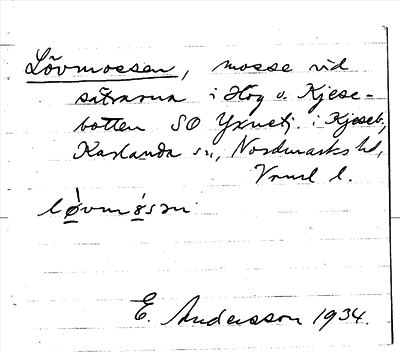 Lövmossen, mosse vid
sätrarna i Hög o. Kjese-
botten SO Yxnetj. i Kjeseb.,
Karlanda sn, Nordmarks hd,
Vrml l.
E. Andersson 1934.